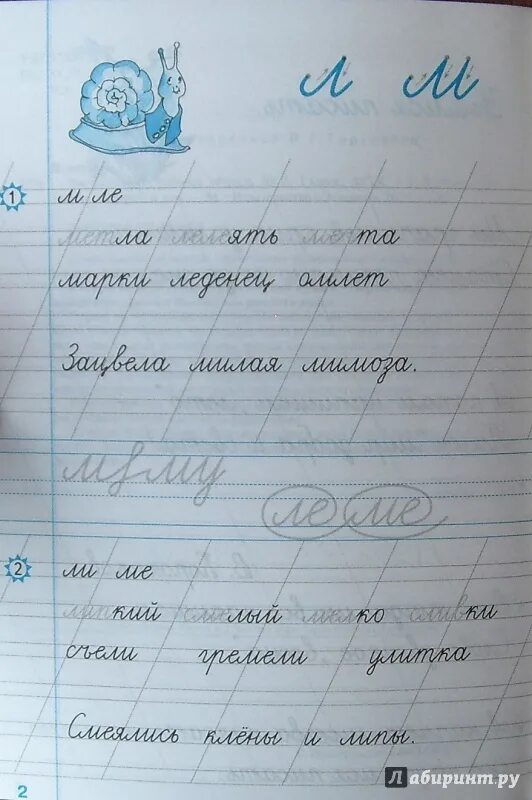 л м
1
м ле
метла лелеять мечта
марки леденец омлет
Зацвела милая мимоза.
ле ме
2
ли ме
липкий смелый мелко сливки
съели гремели улитка
Смеялись клёны и липы.
2
Лабиринт.ру